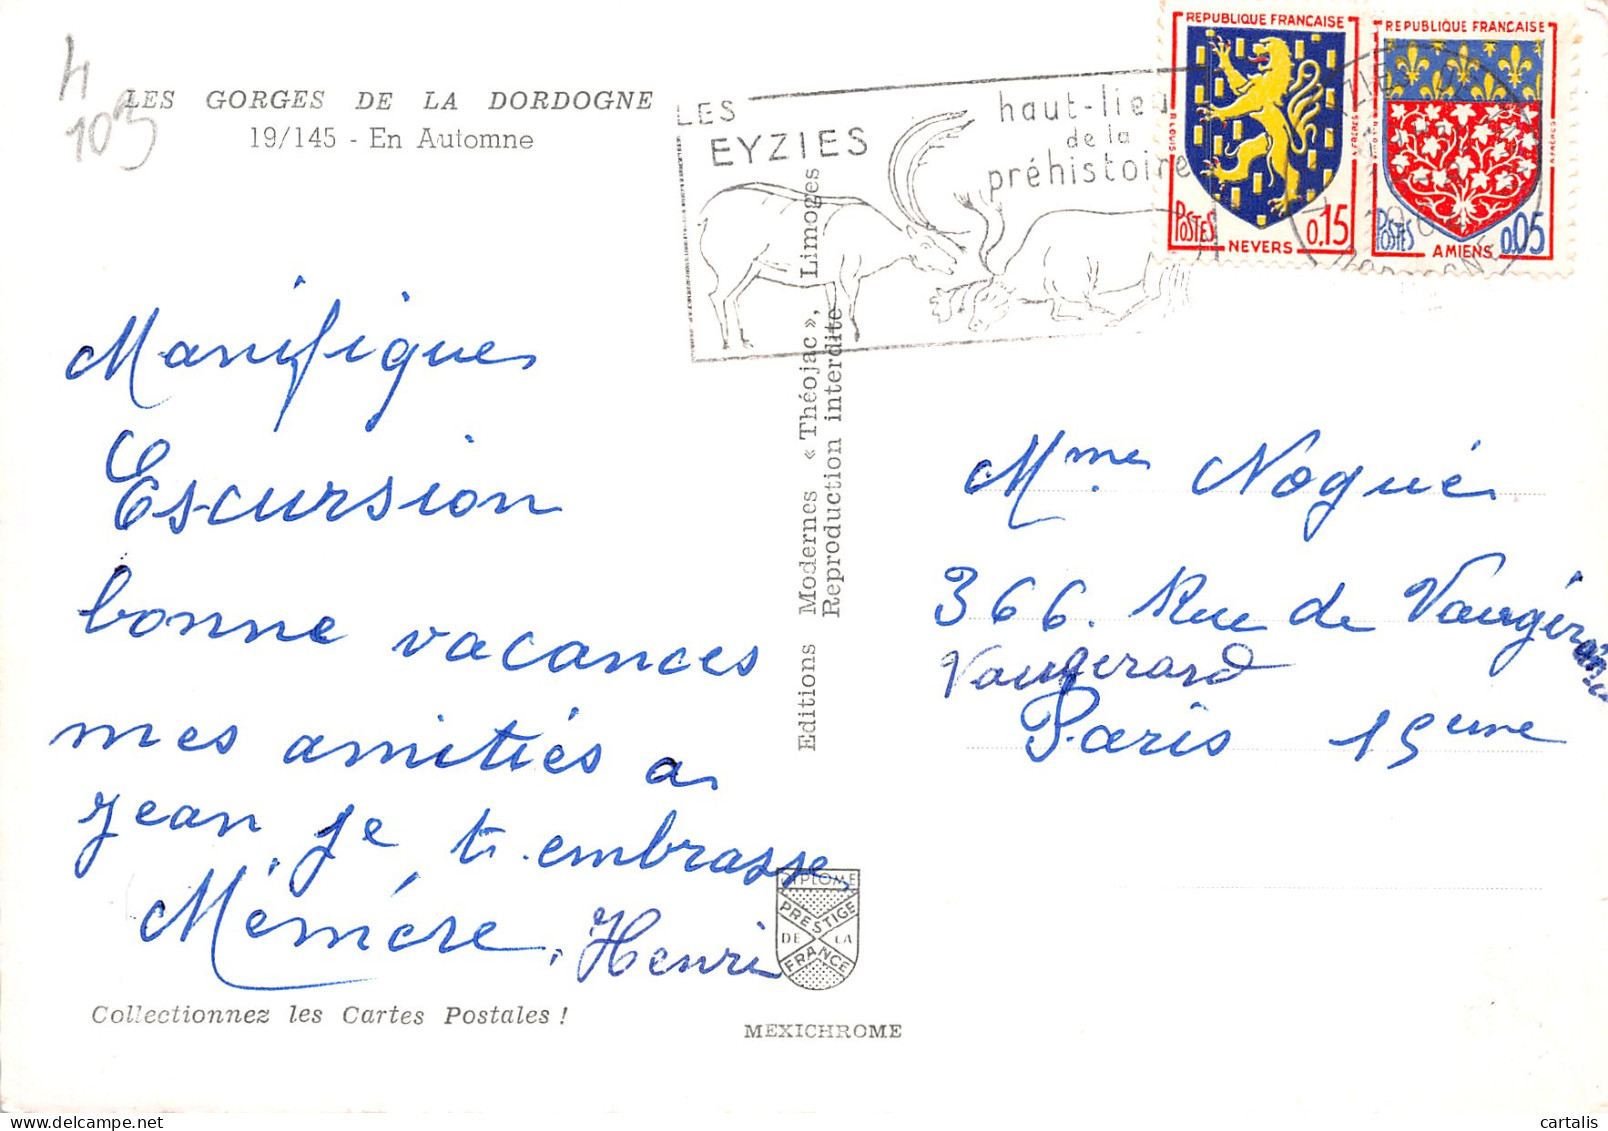 4
103
LES GORGES DE LA DORDOGNE
19/145 - En Automne
LES
EYZIES
haut-lieu
de la
préhistoire
REPUBLIQUE FRANÇAISE
POSTES
NEVERS
0,15
REPUBLIQUE FRANÇAISE
POSTES
AMIENS
0,05
Manifique
Escursion
bonne vacances
mes amitiés a
jean je t. embrasse,
Mémére, Henri
Editions Modernes « Théojac », Limoges
Reproduction interdite
Mme Nogué
366. Rue de Vaugirard
Vaugerard
Paris 15eme
DIPLOME
PRESTIGE
DE LA
FRANCE
Collectionnez les Cartes Postales !
MEXICHROME
cartalis | delcampe.net